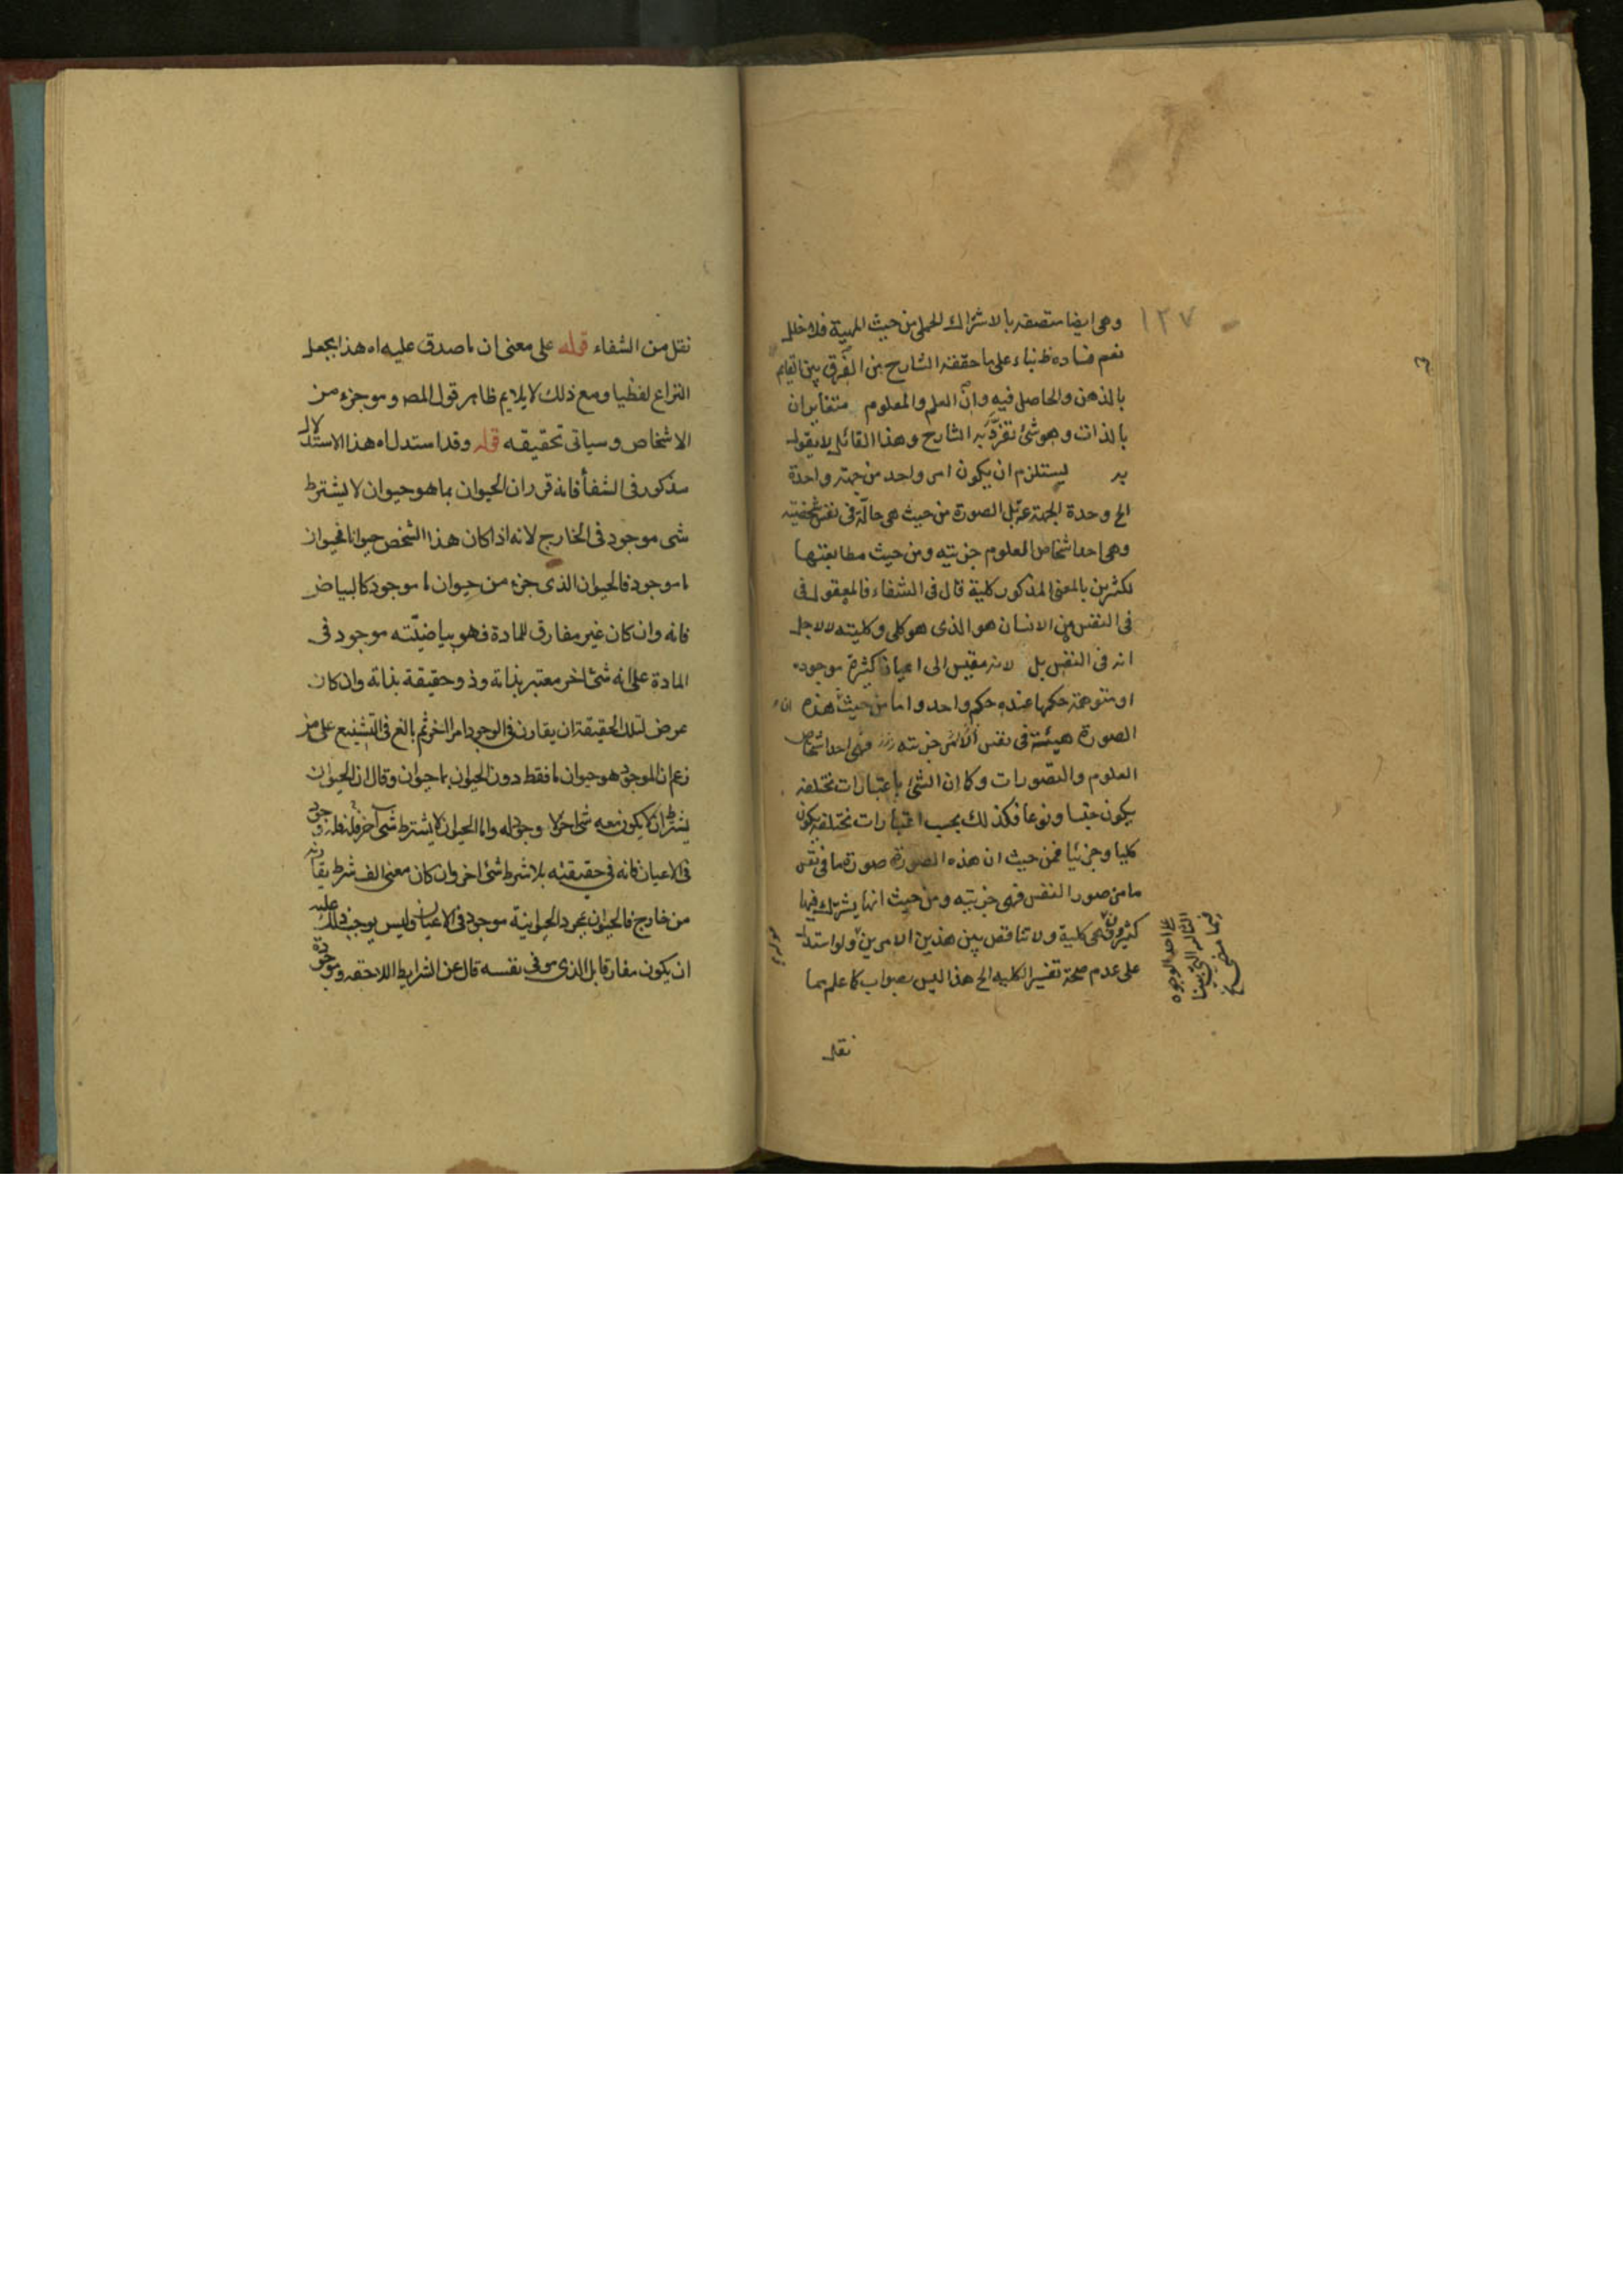 ١٢٧
وهى ايضا متصفه بالاشتراك الحملى من حيث المهية فلا خلل
نعم فساده ظ بناء على ما حققه الشارح من الفرق بين القايم
بالذهن والحاصل فيه وان العلم والمعلوم متغايران
بالذات وهو شئ تفرد به الشارح وهذا القائل لا يقول
به يستلزم ان يكون امر واحد من جهة واحدة
الخ وحدة الجهة بل الصورة من حيث هى حالة فى نفس شخصية
وهى احد اشخاص العلوم جزيته ومن حيث مطابقتها
لكثيرين بالمعنى المذكور كلية قال فى الشفاء فالمعقول فى
فى النفس من الانسان هو الذى هو كلى وكليته لا لاجل
انه فى النفس بل لانه مقيس الى اعيان كثيرة موجوده
او متوهمة حكمها عنده حكم واحد واما من حيث هذه ان
الصورة هيئة فى نفس جزيته فهى احد اشخاص
العلوم والتصورات وكما ان الشئ باعتبارات مختلفه
يكون جنسا ونوعا فكذلك بحسب اعتبارات مختلفه يكون
كليا وجزئيا فمن حيث ان هذه الصورة صورة ما فى نفس
ما من صور النفس فهى جزيته ومن حيث انها يشترك فيها
كثيرون فهى كلية ولا تناقض بين هذين الامرين ولو استدل
على عدم صحة تفسير الكليه الخ هذا ليس بصواب كما علم بما
على احد الوجوه
نقل
نقل من الشفاء قوله على معنى ان ما صدق عليه اه هذا يجعل
النزاع لفظيا ومع ذلك لا يلايم ظاهر قول المص وهو جزء من
الاشخاص وسياتى تحقيقه قوله وقد استدل اه هذا الاستدلال
مذكور فى الشفأ فانه قرر ان الحيوان بما هو حيوان لا يشترط
شى موجود فى الخارج لانه اذا كان هذا الشخص حيوانا فحيوان
ما موجود فالحيوان الذى جزء من حيوان ما موجود كالبياض
فانه وان كان غير مفارق للمادة فهو ببياضيته موجود فى
المادة على انه شئ اخر معتبر بذاته وذو حقيقة بذاته وان كان
عرض لتلك الحقيقة ان يقارن فى الوجود امرا اخر ثم بالغ فى التشنيع على من
زعم ان الموجود هو حيوان ما فقط دون الحيوان بما حيوان وقال ان الحيوان
بشرط ان لا يكون معه شئ اخر لا وجود له واما الحيوان لا بشرط شئ اخر فله وجود
فى الاعيان فانه فى حقيقته بلا شرط شئ اخر وان كان مع الف شرط يقارنه
من خارج فالحيوان بمجرد الحيوانية موجود فى الاعيان وليس يوجب ذلك عليه
ان يكون مفارقا بل الذى هو فى نفسه قال عن الشرايط اللاحقه وموجودة